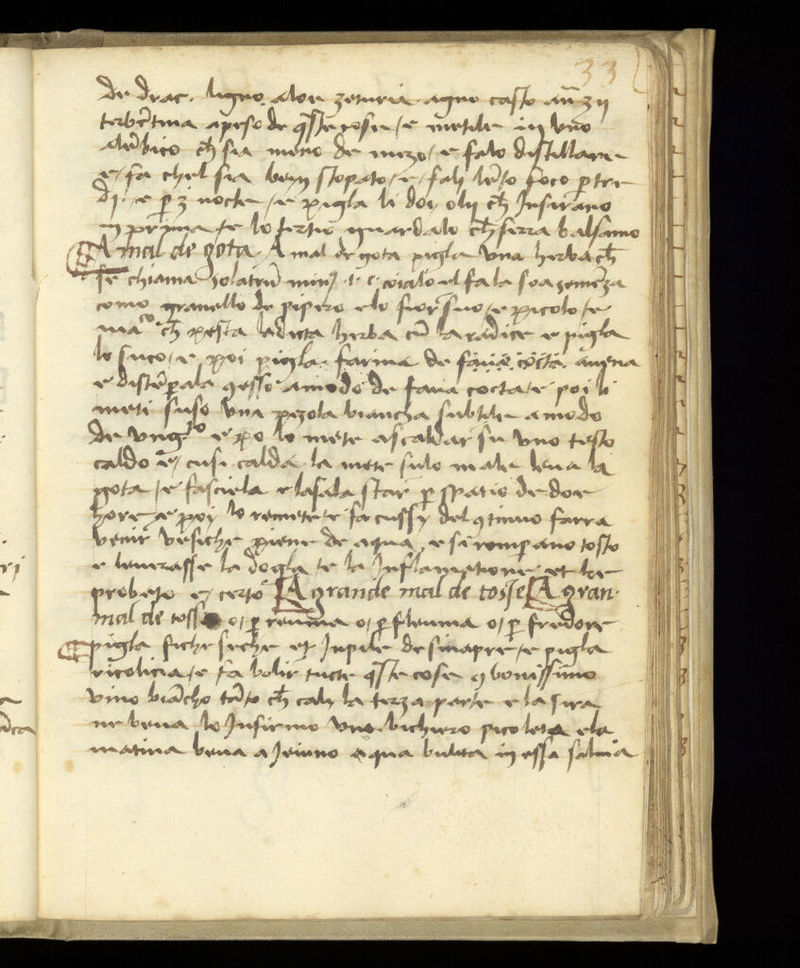 33
de drac. ligno aloe zeturia agno casto añ ʒ ij
terbētina apeso de q̄ste cose / e metile in vno
alēbico ch̄ sia meno de mezo / e falo distillare
e / fa chel sia ben stopato / e / fali lēto foco p̄ tre
dj. e p̄ 3 nocte / e pigla li doi olij ch̄ Insirano
in prima / e lo tertio guardalo ch̄ serra balsamo
A mal de gota. A mal de gota pigla vna herba ch̄
se chiama solatrū el fa la soa semēza
como granello de pipero e lo fior suo / e picolo / e
ch̄ pesta la dicta herba cū la radice e pigla
lo suco / e poi pigla farina de faua cocta
e distēpala 9 esso amodo de faua cocta / e poi li
meti suso vna pezola biancha subtile amodo
de e po lo mete ascaldar su vno testo
caldo e / cusi calda la mete sulo male leua la
gota / e fasciela e lasala star p̄ spatio de doe
hore e poi lo remete / e fa cussy del 9tinuo farra
venir vesiche piene de aqua e si rompano tosto
e leuerasse la dogla / e la Inflamatione et he
probato e / certo A grande mal de tosse A gran
mal de tosse o / p̄ reuma o / p̄ fleuma o / p̄ fredore
pigla fiche seche et Iupile de sinapre / e pigla
ricolicia / e fa bolir tucte q̄ste cose 9 bonissimo
vino biācho tāto ch̄ calj la terza parte e la sira
ne beua lo Infirmo vno bichiero picoleto e la
matina beua a Jeiuno aqua bulita in essa saluia